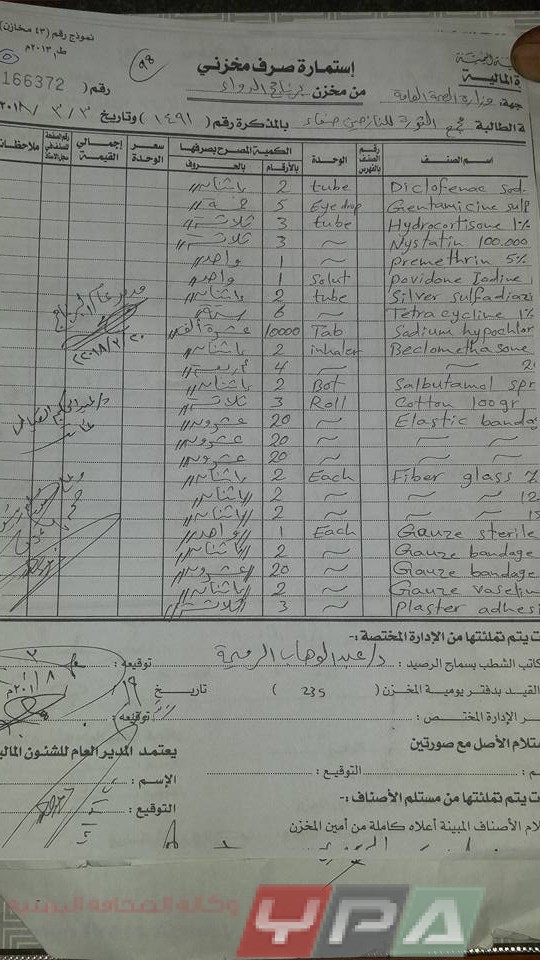 نموذج رقم (٤٣ مخازن)
ط, ٢٠١٣م
٩٨
إستمارة صرف مخزني
المالية
166372
رقم (
من مخزن برنامج الدواء
جهة, وزارة الصحة العامة
بالمذكرة رقم ( ١٤٩١ ) وتاريخ ٣/٣/٢٠١٨
الطالبة مجمع الثورة للنازحين صنعاء
اسم الصنف
رقم الصنف بالفهرس
الوحدة
الكمية المصرح بصرفها
بالأرقام
بالحروف
سعر الوحدة
إجمالي القيمة
ملاحظات
Diclofenac sod. tube 2 إثنان
Gentamicine sulp Eye drop 5 خمسة
Hydrocortisone 1% tube 3 ثلاثة
Nystatin 100.000 ~ 3 ثلاثة
Premethrin 5% ~ 1 واحد
Povidone Iodine Solut 1 واحد
Silver sulfadiazi tube 2 إثنان
Tetracycline 1% ~ 6 ستة
Sodium hypochlor Tab 10000 عشرة ألف
Beclomethasone inhaler 2 إثنان
~ 2 ~ 4 أربعة
Salbutamol spr Bot 2 إثنان
Cotton 100gr Roll 3 ثلاثة
Elastic banda ~ 20 عشرون
~ ~ ~ 20 عشرون
~ ~ ~ 20 عشرون
Fiber glass 7 Each 2 إثنان
~ ~ 12 ~ 2 إثنان
~ ~ 15 ~ 2 إثنان
Gauze sterile Each 1 واحد
Gauze bandage ~ 2 إثنان
Gauze bandage ~ 20 عشرون
Gauze vaselin ~ 2 إثنان
Plaster adhesi ~ 3 ثلاثة
ت يتم تملئتها من الإدارة المختصة :-
كاتب الشطب بسماح الرصيد : د/ عبدالوهاب توقيعه :
القيد بدفتر يومية المخزن ( 235 ) تاريخ
ر الإدارة المختص : توقيعه :
ستلام الأصل مع صورتين
يعتمد المدير العام للشئون المالية
م : التوقيع :
الإسم :
ت يتم تملئتها من مستلم الأصناف :-
التوقيع :
لام الأصناف المبينة أعلاه كاملة من أمين المخزن
وكالة الصحافة اليمنية
YPA